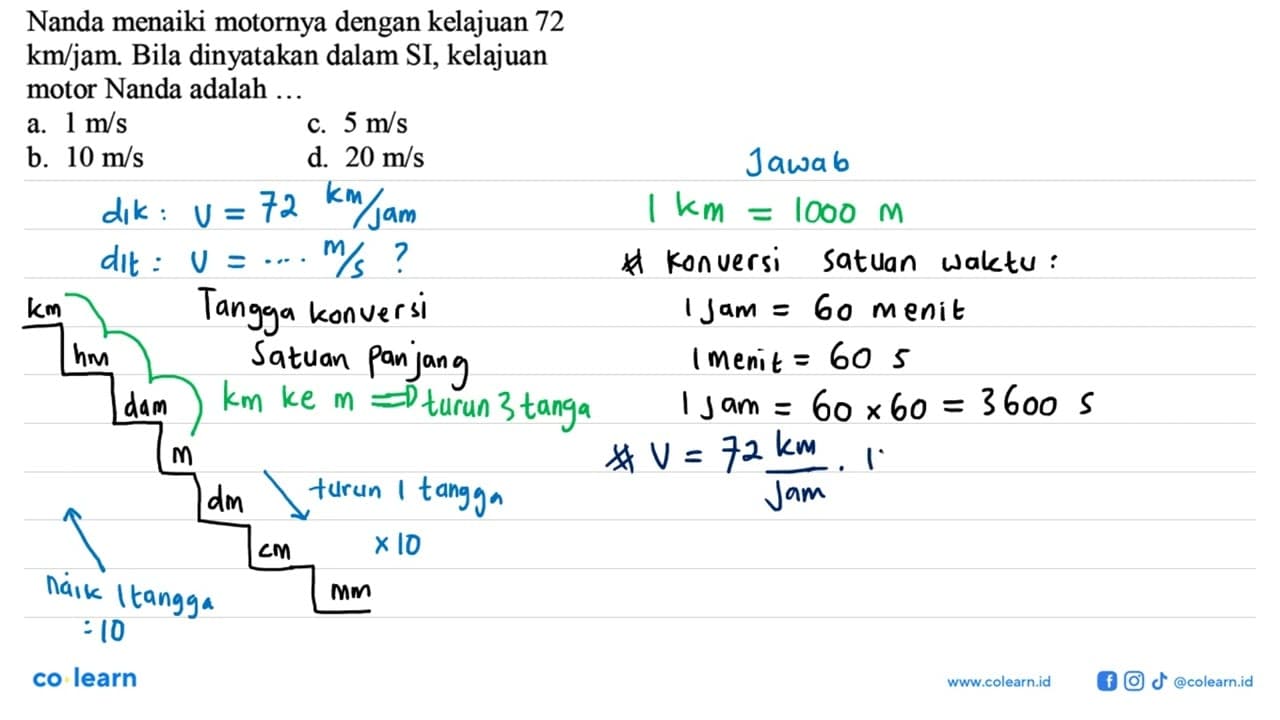 Nanda menaiki motornya dengan kelajuan 72
km/jam. Bila dinyatakan dalam SI, kelajuan
motor Nanda adalah ...
a. 1 m/s
c. 5 m/s
b. 10 m/s
d. 20 m/s
dik : v = 72 km/jam
dit : v = .... m/s ?
Tangga konversi
Satuan Panjang
km ke m => turun 3 tanga
km
hm
dam
m
dm
cm
mm
turun 1 tangga
x 10
naik 1 tangga
: 10
Jawab
1 km = 1000 m
# Konversi satuan waktu :
1 Jam = 60 menit
1 menit = 60 s
1 Jam = 60 x 60 = 3600 s
# V = 72 km/Jam . 1
co learn
www.colearn.id
@colearn.id